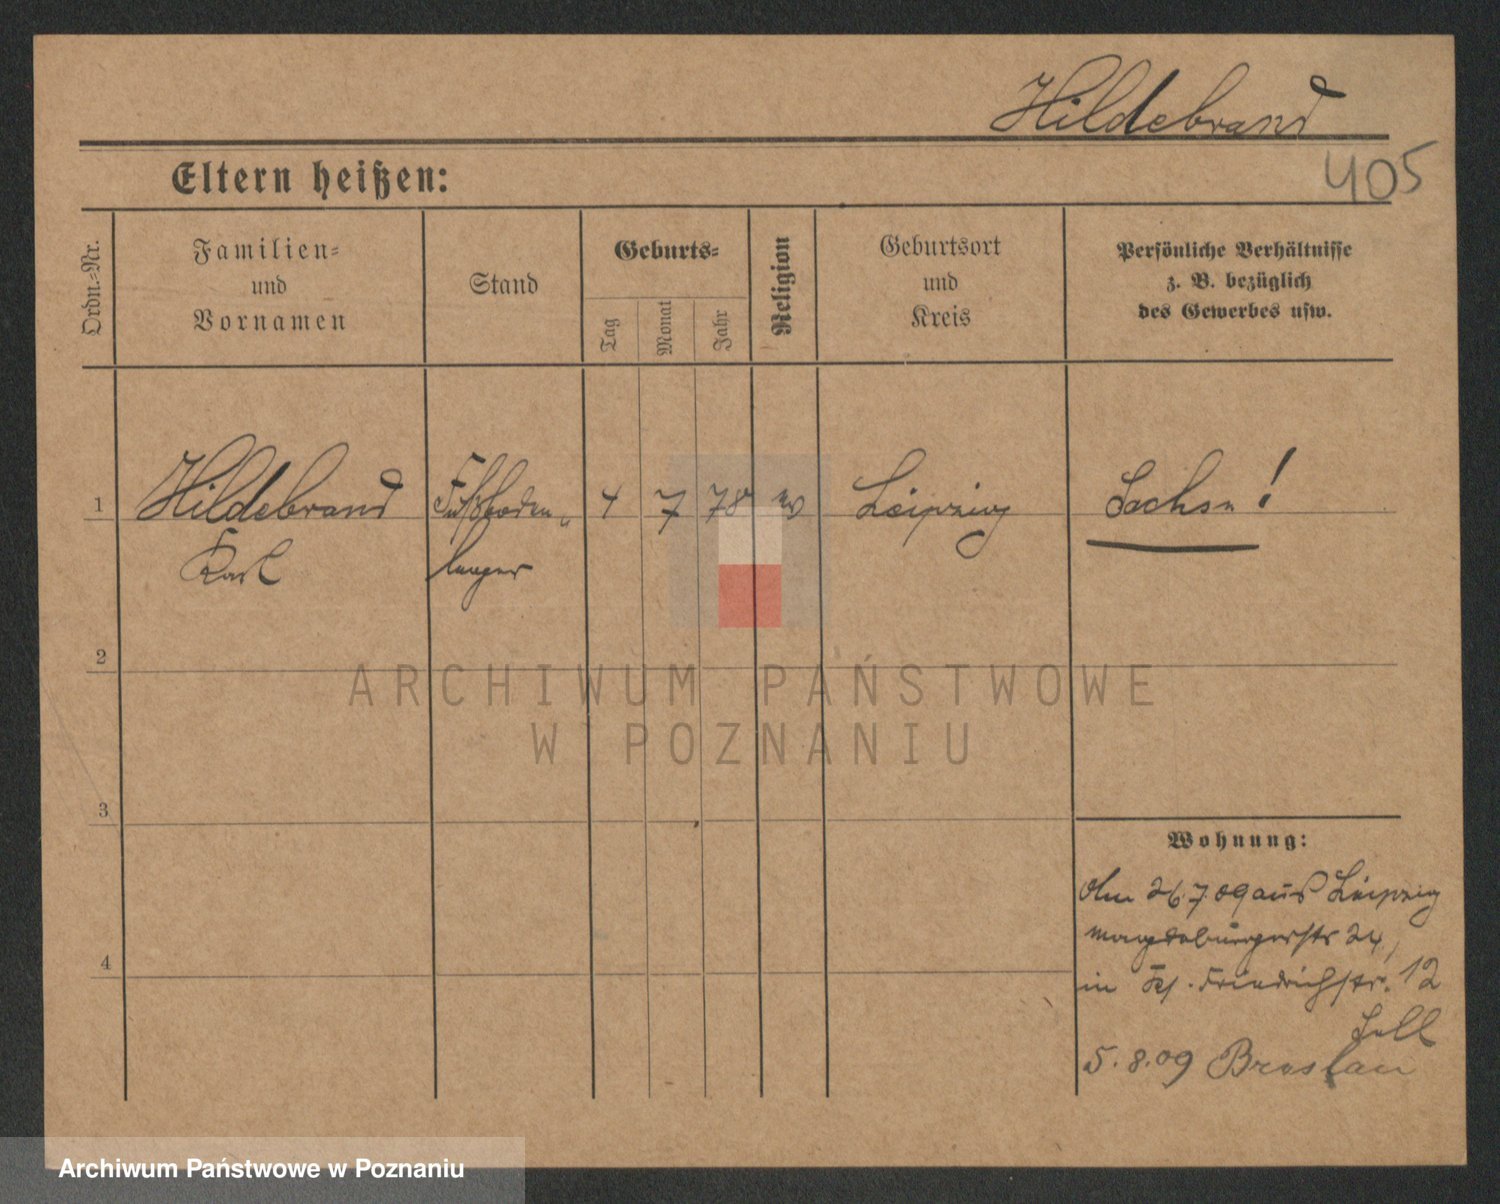 Hildebrand
405
Eltern heißen:
Ordn.-Nr.
Familien-
und
Vornamen
Stand
Geburts-
Tag
Monat
Jahr
Religion
Geburtsort
und
Kreis
Persönliche Verhältnisse
z. B. bezüglich
des Gewerbes usw.
1
Hildebrand
Karl
Fußboden-
leger
4
7
78
ev
Leipzig
Sachsen!
2
ARCHIWUM PAŃSTWOWE
W POZNANIU
3
4
Wohnung:
26.7.09 aus Leipzig
Magdeburgerstr 24,
in Friedrichstr. 12
5.8.09 Breslau
Archiwum Państwowe w Poznaniu